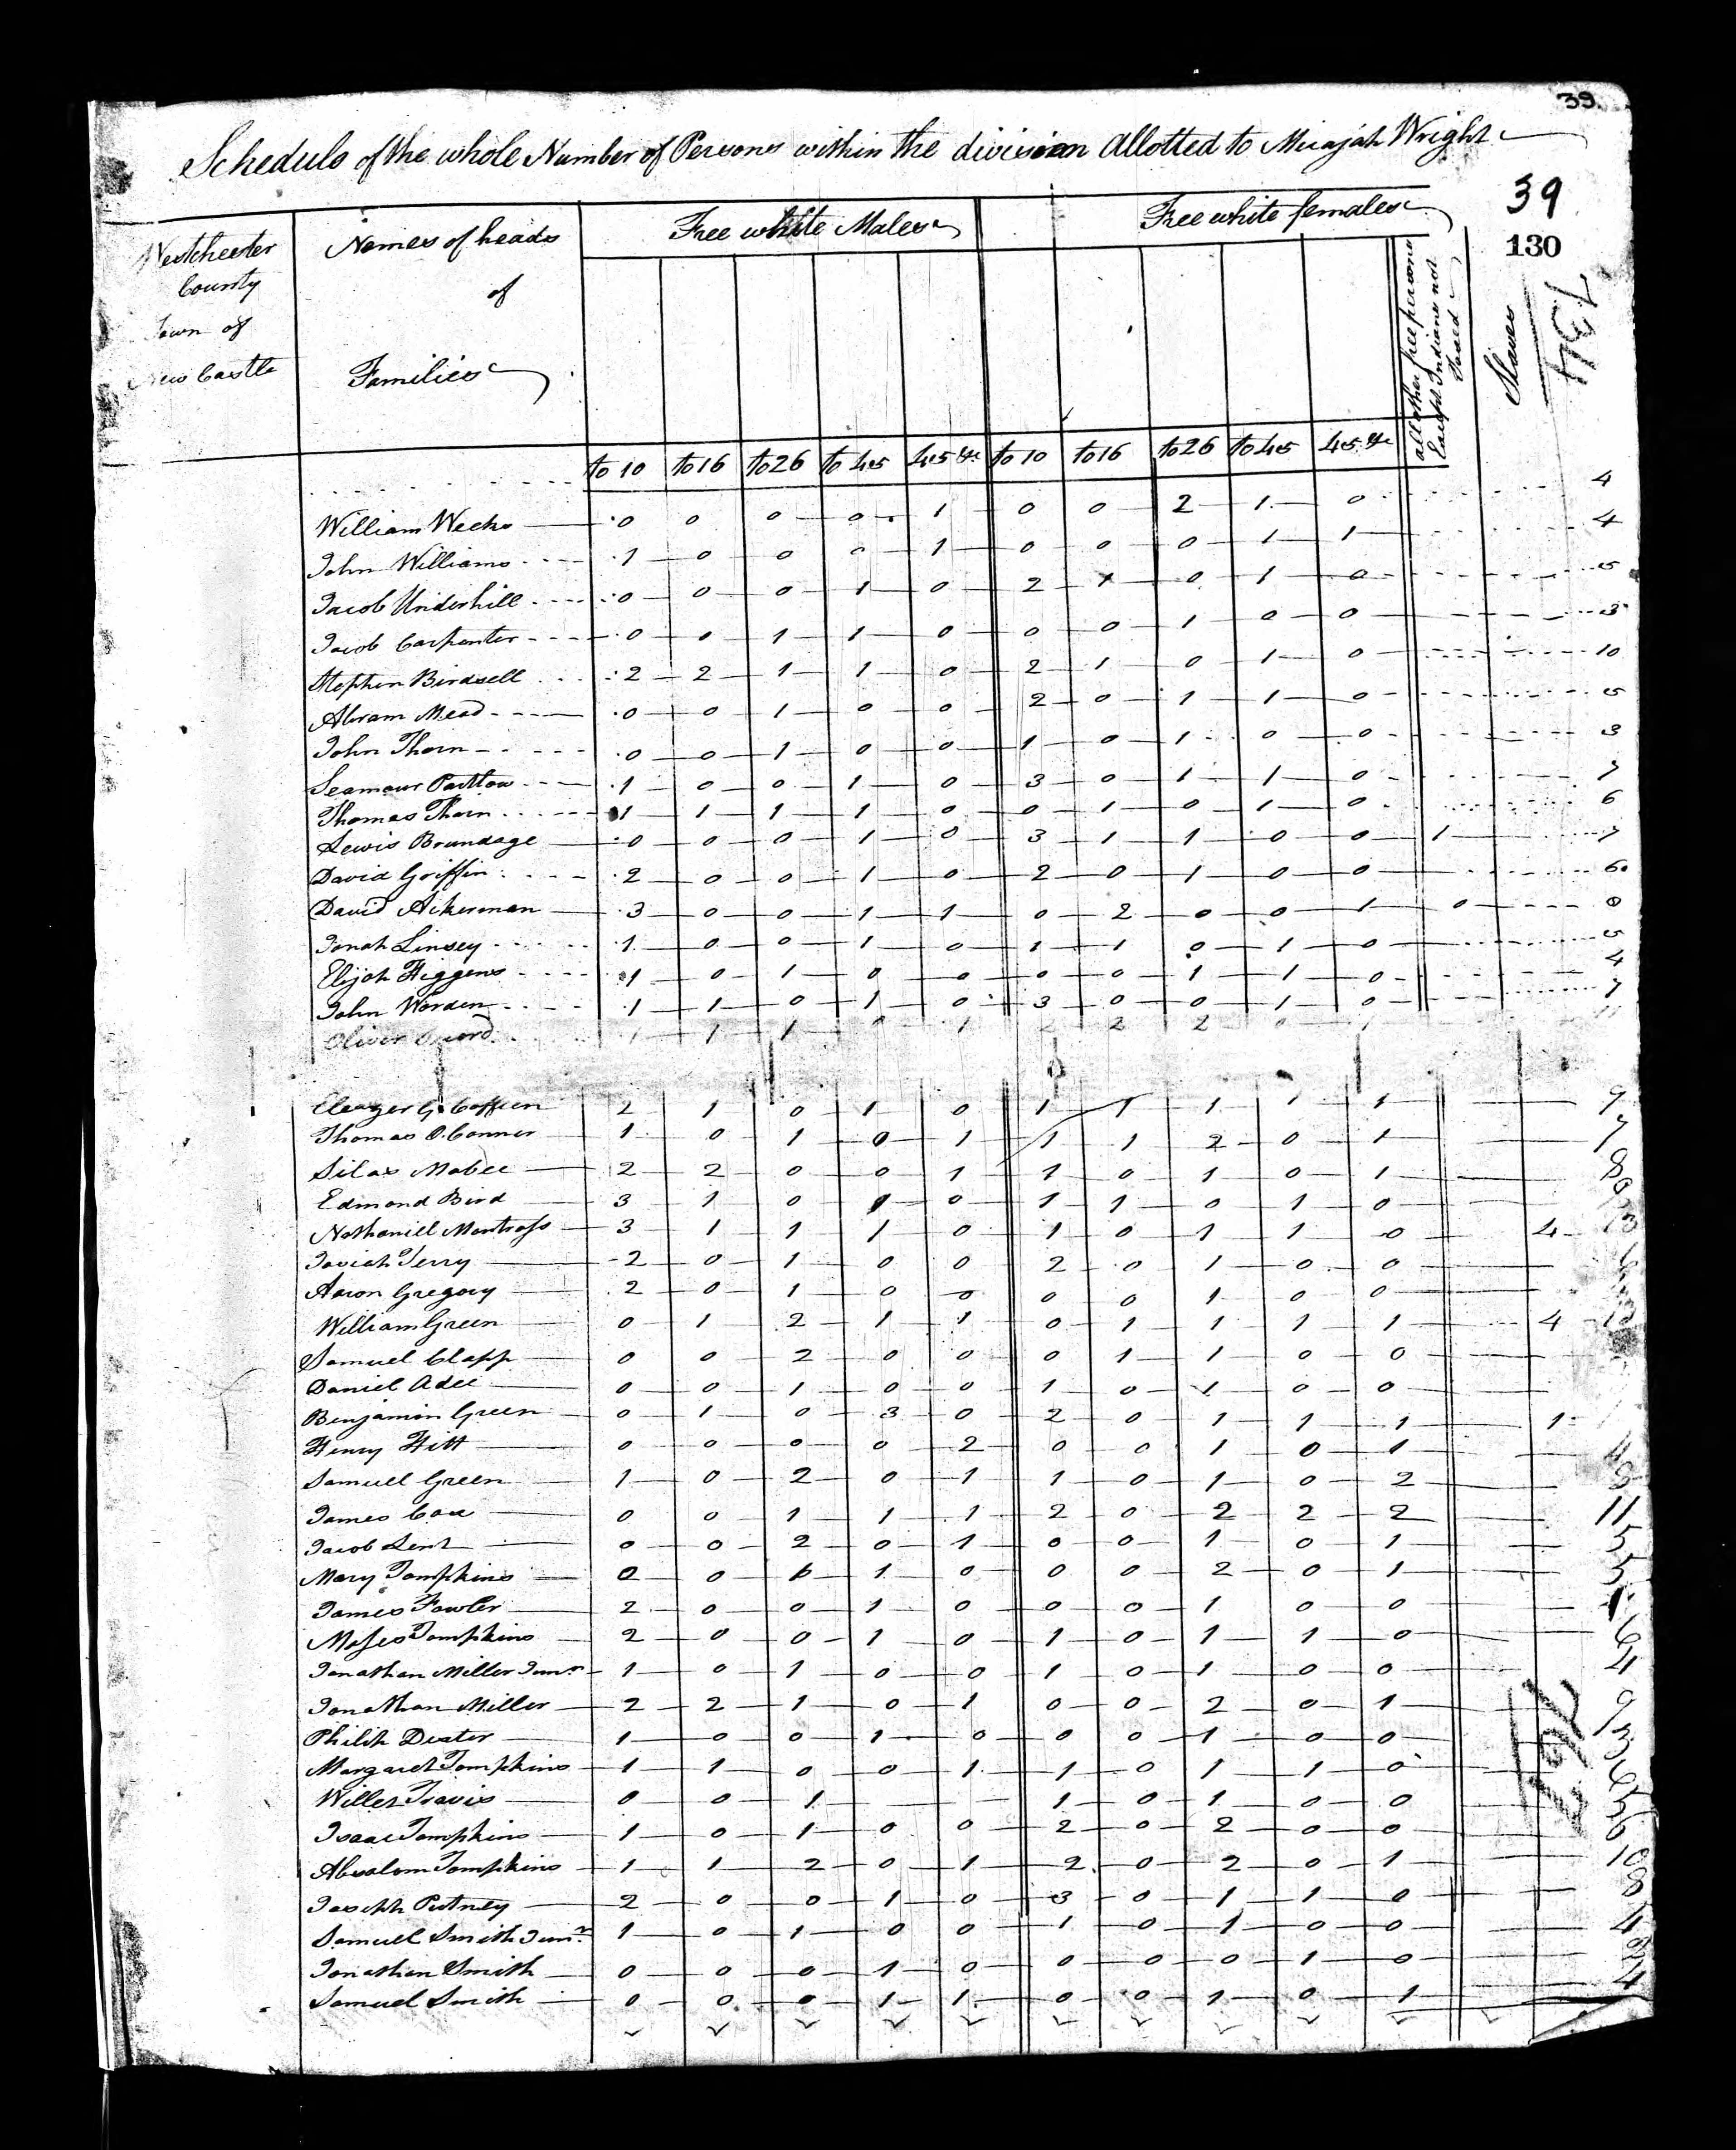 39.
Schedule of the whole Number of Persons within the division Allotted to Micajah Wright
39
130
134
Westchester County Town of New Castle
Names of heads of Families
Free white Males
Free white females
all other free persons Except Indians not Taxed
Slaves
to 10 to 16 to 26 to 45 45 &c to 10 to 16 to 26 to 45 45 &c
William Weeks 0 0 0 0 1 0 0 2 1 0 4
John Williams 1 0 0 0 1 0 0 0 1 1 4
Jacob Underhill 0 0 0 1 0 2 1 0 1 0 5
Jacob Carpenter 0 0 1 1 0 0 0 1 0 0 3
Stephen Birdsell 2 2 1 1 0 2 1 0 1 0 10
Abram Mead 0 0 1 0 0 2 0 1 1 0 5
John Thorn 0 0 1 0 0 1 0 1 0 0 3
Seamour 1 0 0 1 0 3 0 1 1 0 7
Thomas Thorn 1 1 1 1 0 0 1 0 1 0 6
Lewis Brundage 0 0 0 1 0 3 1 1 0 0 1 7
David Griffin 2 0 0 1 0 2 0 1 0 0 6
David Ackerman 3 0 0 1 1 0 2 0 0 1 0 8
Jonah Linsey 1 0 0 1 0 1 1 0 1 0 5
Elijah Higgens 1 0 1 0 0 0 0 1 1 0 4
John Worden 1 1 0 1 0 3 0 0 1 0 7
Oliver 1 1 1 2 2 2
Eleazer G. Coffeen 2 1 0 1 0 1 1 1 1 1 9
Thomas O.Conner 1 0 1 0 1 1 1 2 0 1 7
Silas Mabee 2 2 0 0 1 1 0 1 0 1 8
Edmond Bird 3 1 0 1 0 1 1 0 1 0
Nathaniell Montross 3 1 1 1 0 1 0 1 1 0 4 13
Josiah Terry 2 0 1 0 0 2 0 1 0 0
Aaron Gregory 2 0 1 0 0 0 0 1 0 0
William Green 0 1 2 1 1 0 1 1 1 1 4 13
Samuel Clapp 0 0 2 0 0 0 1 1 0 0
Daniel Adee 0 0 1 0 0 1 0 1 0 0
Benjamin Green 0 1 0 3 0 2 0 1 1 1 1
Henry Hitt 0 0 0 0 2 0 0 1 0 1 4
Samuell Green 1 0 2 0 1 1 0 1 0 2 8
James 0 0 1 1 1 2 0 2 2 2 11
Jacob Lent 0 0 2 0 1 0 0 1 0 1 5
Mary Tompkins 0 1 0 0 0 2 0 1 5
James Fowler 2 0 0 1 0 0 0 1 0 0
Moses Tompkins 2 0 0 1 0 1 0 1 1 0 6
Jonathan Miller Junr 1 0 1 0 0 1 0 1 0 0 4
Jonathan Miller 2 2 1 0 1 0 0 2 0 1 9
Philip Dexter 1 0 0 1 0 0 0 1 0 0 3
Margaret Tompkins 1 1 0 0 1 1 0 1 1 0 6
Willet Travis 0 0 1 1 0 1 0 0 3
Isaac Tompkins 1 0 1 0 0 2 0 2 0 0 6
Absalom Tompkins 1 1 2 0 1 2 0 2 0 1 10
Joseph Putney 2 0 0 1 0 3 0 1 1 0 8
Samuel Smith Junr. 1 0 1 0 0 1 0 1 0 0 4
Jonathan Smith 0 0 0 1 0 0 0 0 1 0 2
Samuel Smith 0 0 0 1 1 0 0 1 0 1 4